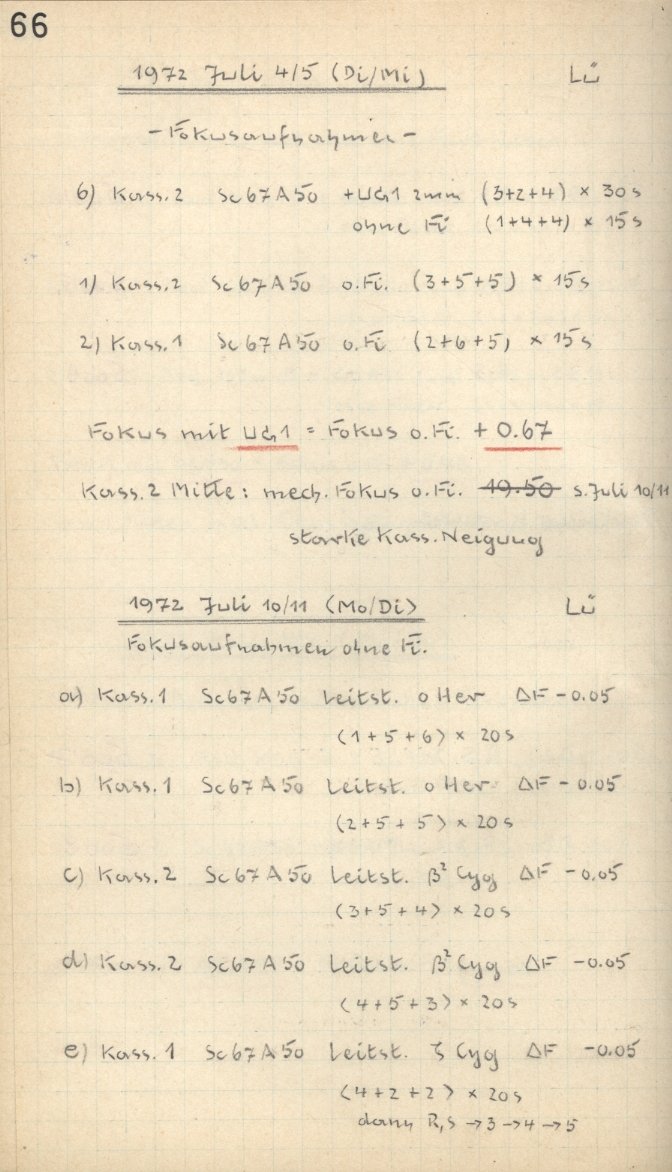 66
1972 Juli 4/5 (Di/Mi) Lü
- Fokusaufnahmen -
6) Kass. 2 Sc67A50 + UG1 2mm (3+2+4) × 30s
ohne Fi (1+4+4) × 15s
1) Kass. 2 Sc67A50 o.Fi. (3+5+5) × 15s
2) Kass. 1 Sc67A50 o.Fi (2+6+5) × 15s
Fokus mit UG1 = Fokus o.Fi. + 0.67
Kass. 2 Mitte: mech. Fokus o.Fi. 19.50 s. Juli 10/11
starke Kass. Neigung
1972 Juli 10/11 (Mo/Di) Lü
Fokusaufnahmen ohne Fi.
a) Kass. 1 Sc67A50 Leitst. o Her ΔF - 0.05
(1+5+6) × 20s
b) Kass. 1 Sc67A50 Leitst. o Her ΔF - 0.05
(2+5+5) × 20s
c) Kass. 2 Sc67A50 Leitst. β² Cyg ΔF - 0.05
(3+5+4) × 20s
d) Kass. 2 Sc67A50 Leitst. β² Cyg ΔF - 0.05
(4+5+3) × 20s
e) Kass. 1 Sc67A50 Leitst. ζ Cyg ΔF - 0.05
(4+2+2) × 20s
dann R,S → 3 → 4 → 5